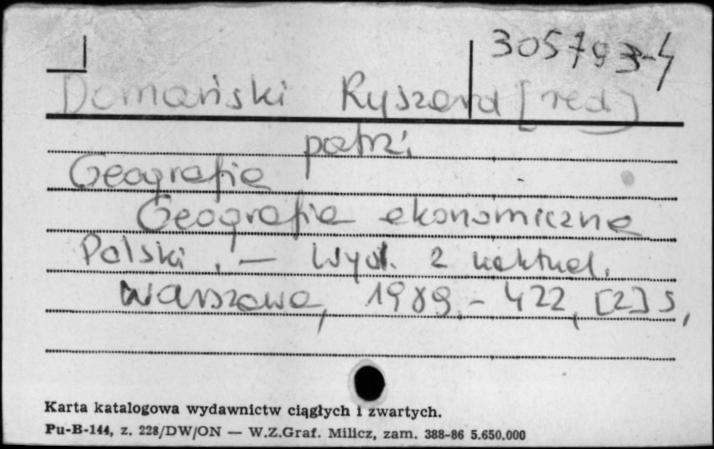 305793-4
Domański Ryszard [red]
patrz:
Geografia
Geografia ekonomiczna
Polski. — Wyd. 2 uaktual.
Warszawa, 1989. - 422, [2] s,
Karta katalogowa wydawnictw ciągłych i zwartych.
Pu-B-144, z. 228/DW/ON — W.Z.Graf. Milicz, zam. 388-86 5.650.000